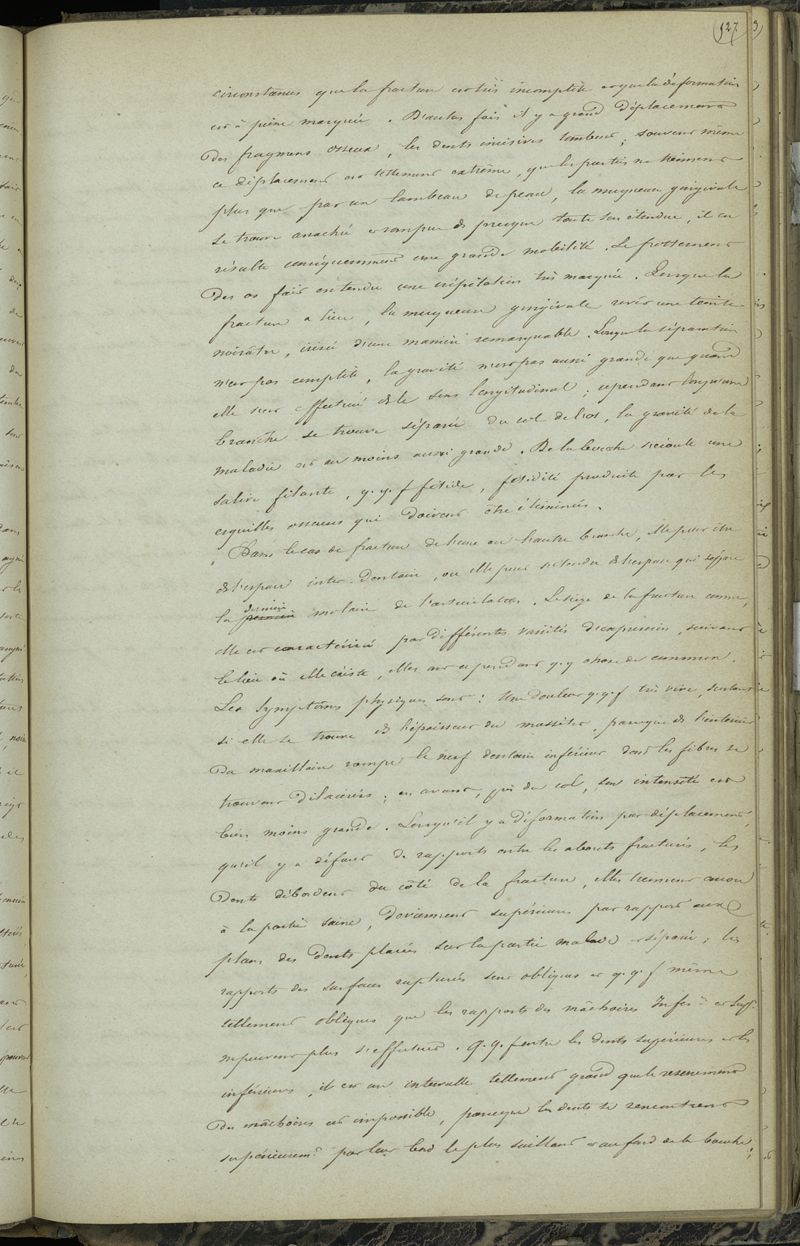 127
circonstances que la fracture est très incomplète et que la déformation
est à peine marquée. D'autres fois il y a grand déplacement
des fragmens osseux, les dents incisives tombent; souvent même
ce déplacement est tellement extrême, que les parties ne tiennent
plus que par un lambeau de peau, la muqueuse gingivale
se trouve arrachée et rompue ds presque toute son étendue, il en
résulte conséquemment une grande mobilité. Le frottement
des os fait entendre une crépitation très marquée. Lorsque la
fracture a lieu, la muqueuse gingivale revêt une teinte
noirâtre, irisée d'une manière remarquable. Lorsque la séparation
n'est pas complète, la gravité n'est pas aussi grande que quand
elle s'est effectuée ds le sens longitudinal; cependant lorsqu'une
branche se trouve séparée du col de l'os, la gravité de la
maladie est au moins aussi grande. De la bouche s'écoule une
salive filante, q.q.f fétide, fétidité produite par les
esquilles osseuses qui doivent être éliminées.
Dans le cas de fracture de l'une ou l'autre branche, elle peut être
ds l'espace inter-dentaire, ou elle peut s'étendre ds l'espace qui sépare
la dernière molaire de l'articulation. Le siège de la fracture connu,
elle est caractérisée par différentes variétés d'expression, suivant
le lieu où elle existe, elles ont cependant q.q chose de commun.
Les symptômes physiques sont: Une douleur q.q.f très vive, surtout
si elle se trouve ds l'épaisseur du masséter, parceque ds l'intérieur
du maxillaire rampe le nerf dentaire inférieur dont les fibres se
trouvent dilacérées; en avant, près du col, son intensité est
bien moins grande. Lorsqu'il y a déformation par déplacement,
qu'il y a défaut de rapports entre les abouts fracturés, les
dents débordent du côté de la fracture, elles tiennent encore
à la partie saine, deviennent supérieures par rapport aux
plans des dents placées sur la partie malade et séparée; les
rapports des surfaces rupturées sont obliques et q.q.f même
tellement obliques que les rapports des mâchoires Infér.e et Supr.
ne peuvent plus s'effectuer. Q.q.f entre les dents supérieures et les
inférieures, il est un intervalle tellement grand que le resserrement
des mâchoires est impossible, parceque les dents se rencontrent
supérieurem.t par leur bord le plus saillant et au fond de la bouche;